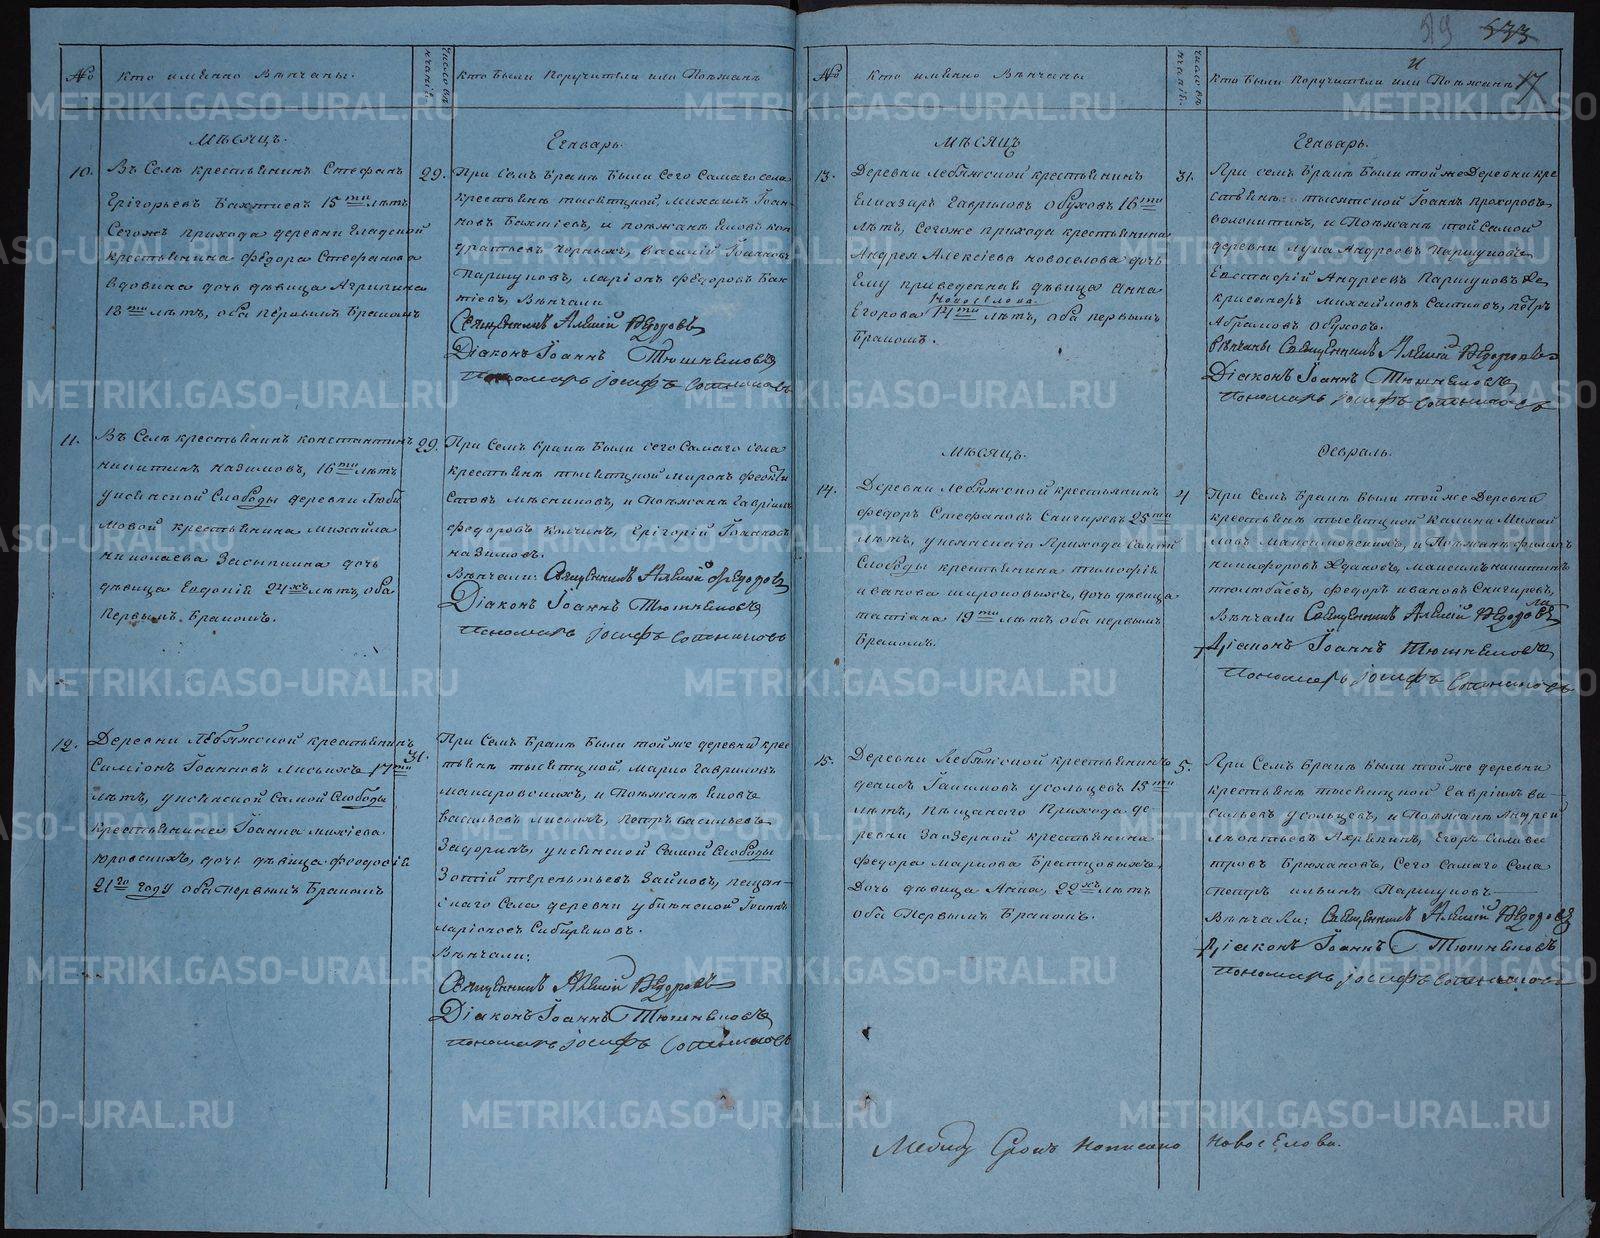 №
Кто имянно Вѣнчаны.
Число вѣнчанiй.
Кто были Поручители или Поѣжанѣ
Мѣсяцъ.
Генварь.
10.
Въ Селѣ крестьянинъ Стефанъ
Григорьевъ Бахтиевъ 15ти лѣтъ
Сегожъ прихода деревни Гладской
крестьянина Федора Стефанова
Вдовина дочь дѣвица Агрипина
18ти лѣтъ, оба первымъ Бракомъ
29.
При Семъ Бракѣ были Сего Самаго села
крестьянѣ тысяцкой, Михаилъ Iоан-
новъ Бахтiевъ, и поѣжанѣ Яковъ кон
дратьевъ Черныхъ, Василiй Iоанновъ
Паршуковъ, Ларiонъ Федоровъ Бах
тiевъ, Вѣнчали
Священникъ Алексiй Федоровъ
Дiаконъ Iоаннъ Тюшняковъ
Пономарь Iосифъ Сотниковъ
11.
Въ Селѣ крестьянинъ константинъ
никитинъ назимовъ, 16ти лѣтъ
Слободы деревни Люби
мовой крестьянина михайла
николаева Засыпкина дочь
дѣвица Евдокiй 24хъ лѣтъ, оба
Первымъ Бракомъ.
29.
При Семъ Бракѣ Были сего Самаго села
крестьянѣ тысяцкой миронъ феокти
стовъ мясниковъ, и Поѣжанѣ Гаврiилъ
федоровъ колчинъ, Григорiй Iоанновъ
назимовъ.
Вѣнчали: Священникъ Алексiй Федоровъ
Дiаконъ Iоаннъ Тюшняковъ
Пономарь Iосифъ Сотниковъ
12.
Деревни Лебяжской крестьянинъ
Симiонъ Iоанновъ Лисьихъ 17ти
лѣтъ, Самой Слободы
крестьянина Iоанна михiева
юровскихъ, дочь дѣвица феодосiя
21го году оба первымъ Бракомъ
31.
При Семъ Бракѣ Были той же деревни крес
тьянѣ тысяцкой, Марко Гавриловъ
макаровскихъ, и Поѣжанѣ Яковъ
васильевъ лисьихъ, Петръ васильевъ
Задоринъ, Самой Слободы
Зотiй терентьевъ Зайковъ, пещан-
скаго Села деревни убiенской Iоаннъ
ларiоновъ Сибиряковъ.
Вѣнчали:
Священникъ Алексiй Федоровъ
Дiаконъ Iоаннъ Тюшняковъ
Пономарь Iосифъ Сотниковъ
519 533
№
Кто имянно Вѣнчаны
Число вѣнчанiй.
Кто Были Поручители или Поѣжанѣ
17
Мѣсяцъ
Генварь.
13.
Деревни Лебяжской крестьянинъ
Елиазаръ Гавриловъ Обуховъ 16ти
лѣтъ, Сегоже прихода крестьянина
Андрея Алексiева новоселова дочь
Ему приведенная дѣвица Анна
Новоселова
Егорова 17ти лѣтъ, оба первымъ
Бракомъ.
31.
При семъ Бракѣ Были той же Деревни кре
стьянѣ тысяцкой Iоаннъ прохоровъ
волокитинъ, и Поѣжанѣ той Самой
деревни лука Андреевъ Паршуковъ
Евстафiй Андреевъ Паршуковъ
михайловъ Салтыковъ, петръ
Абрамовъ обуховъ.
Вѣнчаны Священникъ Алексiй Федоровъ
Дiаконъ Iоаннъ Тюшняковъ
Пономарь Iосифъ Сотниковъ
Мѣсяцъ.
Февраль.
14.
Деревни Лебяжской крестьянинъ
федоръ Стефановъ Снигиревъ 25ти
лѣтъ, Прихода Самой
Слободы крестьянина тимофiя
иванова широковыхъ, дочь дѣвица
татiана 19ти лѣтъ оба первымъ
Бракомъ.
4
При Семъ Бракѣ Были той же Деревни
крестьянѣ тысяцкой калина михай
ловъ Максимовскихъ, и Поѣжанѣ филипъ
никифоровъ Ждановъ, максимъ никитинъ
тюлюбаевъ, федоръ ивановъ Снигиревъ,
Вѣнчали Священникъ Алексiй Федоровъ
Дiаконъ Iоаннъ Тюшняковъ
Пономарь Iосифъ Сотниковъ
15.
Деревни Лебяжской крестьянинъ
усольцевъ 18ти
лѣтъ, Пещанаго Прихода де
ревни Заозерной крестьянина
Федора маркова Брантцовыхъ,
Дочь дѣвица Анна, 22хъ лѣтъ
оба Первымъ Бракомъ.
5.
При Семъ Бракѣ Были той же деревни
крестьянѣ тысяцкой Гаврiилъ ва-
сильевъ усольцевъ, и Поѣжанѣ Андрей
леонтьевъ Егоръ Сильвес
тровъ Брюхановъ, Сего Самаго Села
петръ ильинъ Паршуковъ
Вѣнчали: Священникъ Алексiй Федоровъ
Дiаконъ Iоаннъ Тюшняковъ
Пономарь Iосифъ Сотниковъ
Между Строкъ написано Новоселова.
METRIKI.GASO-URAL.RU